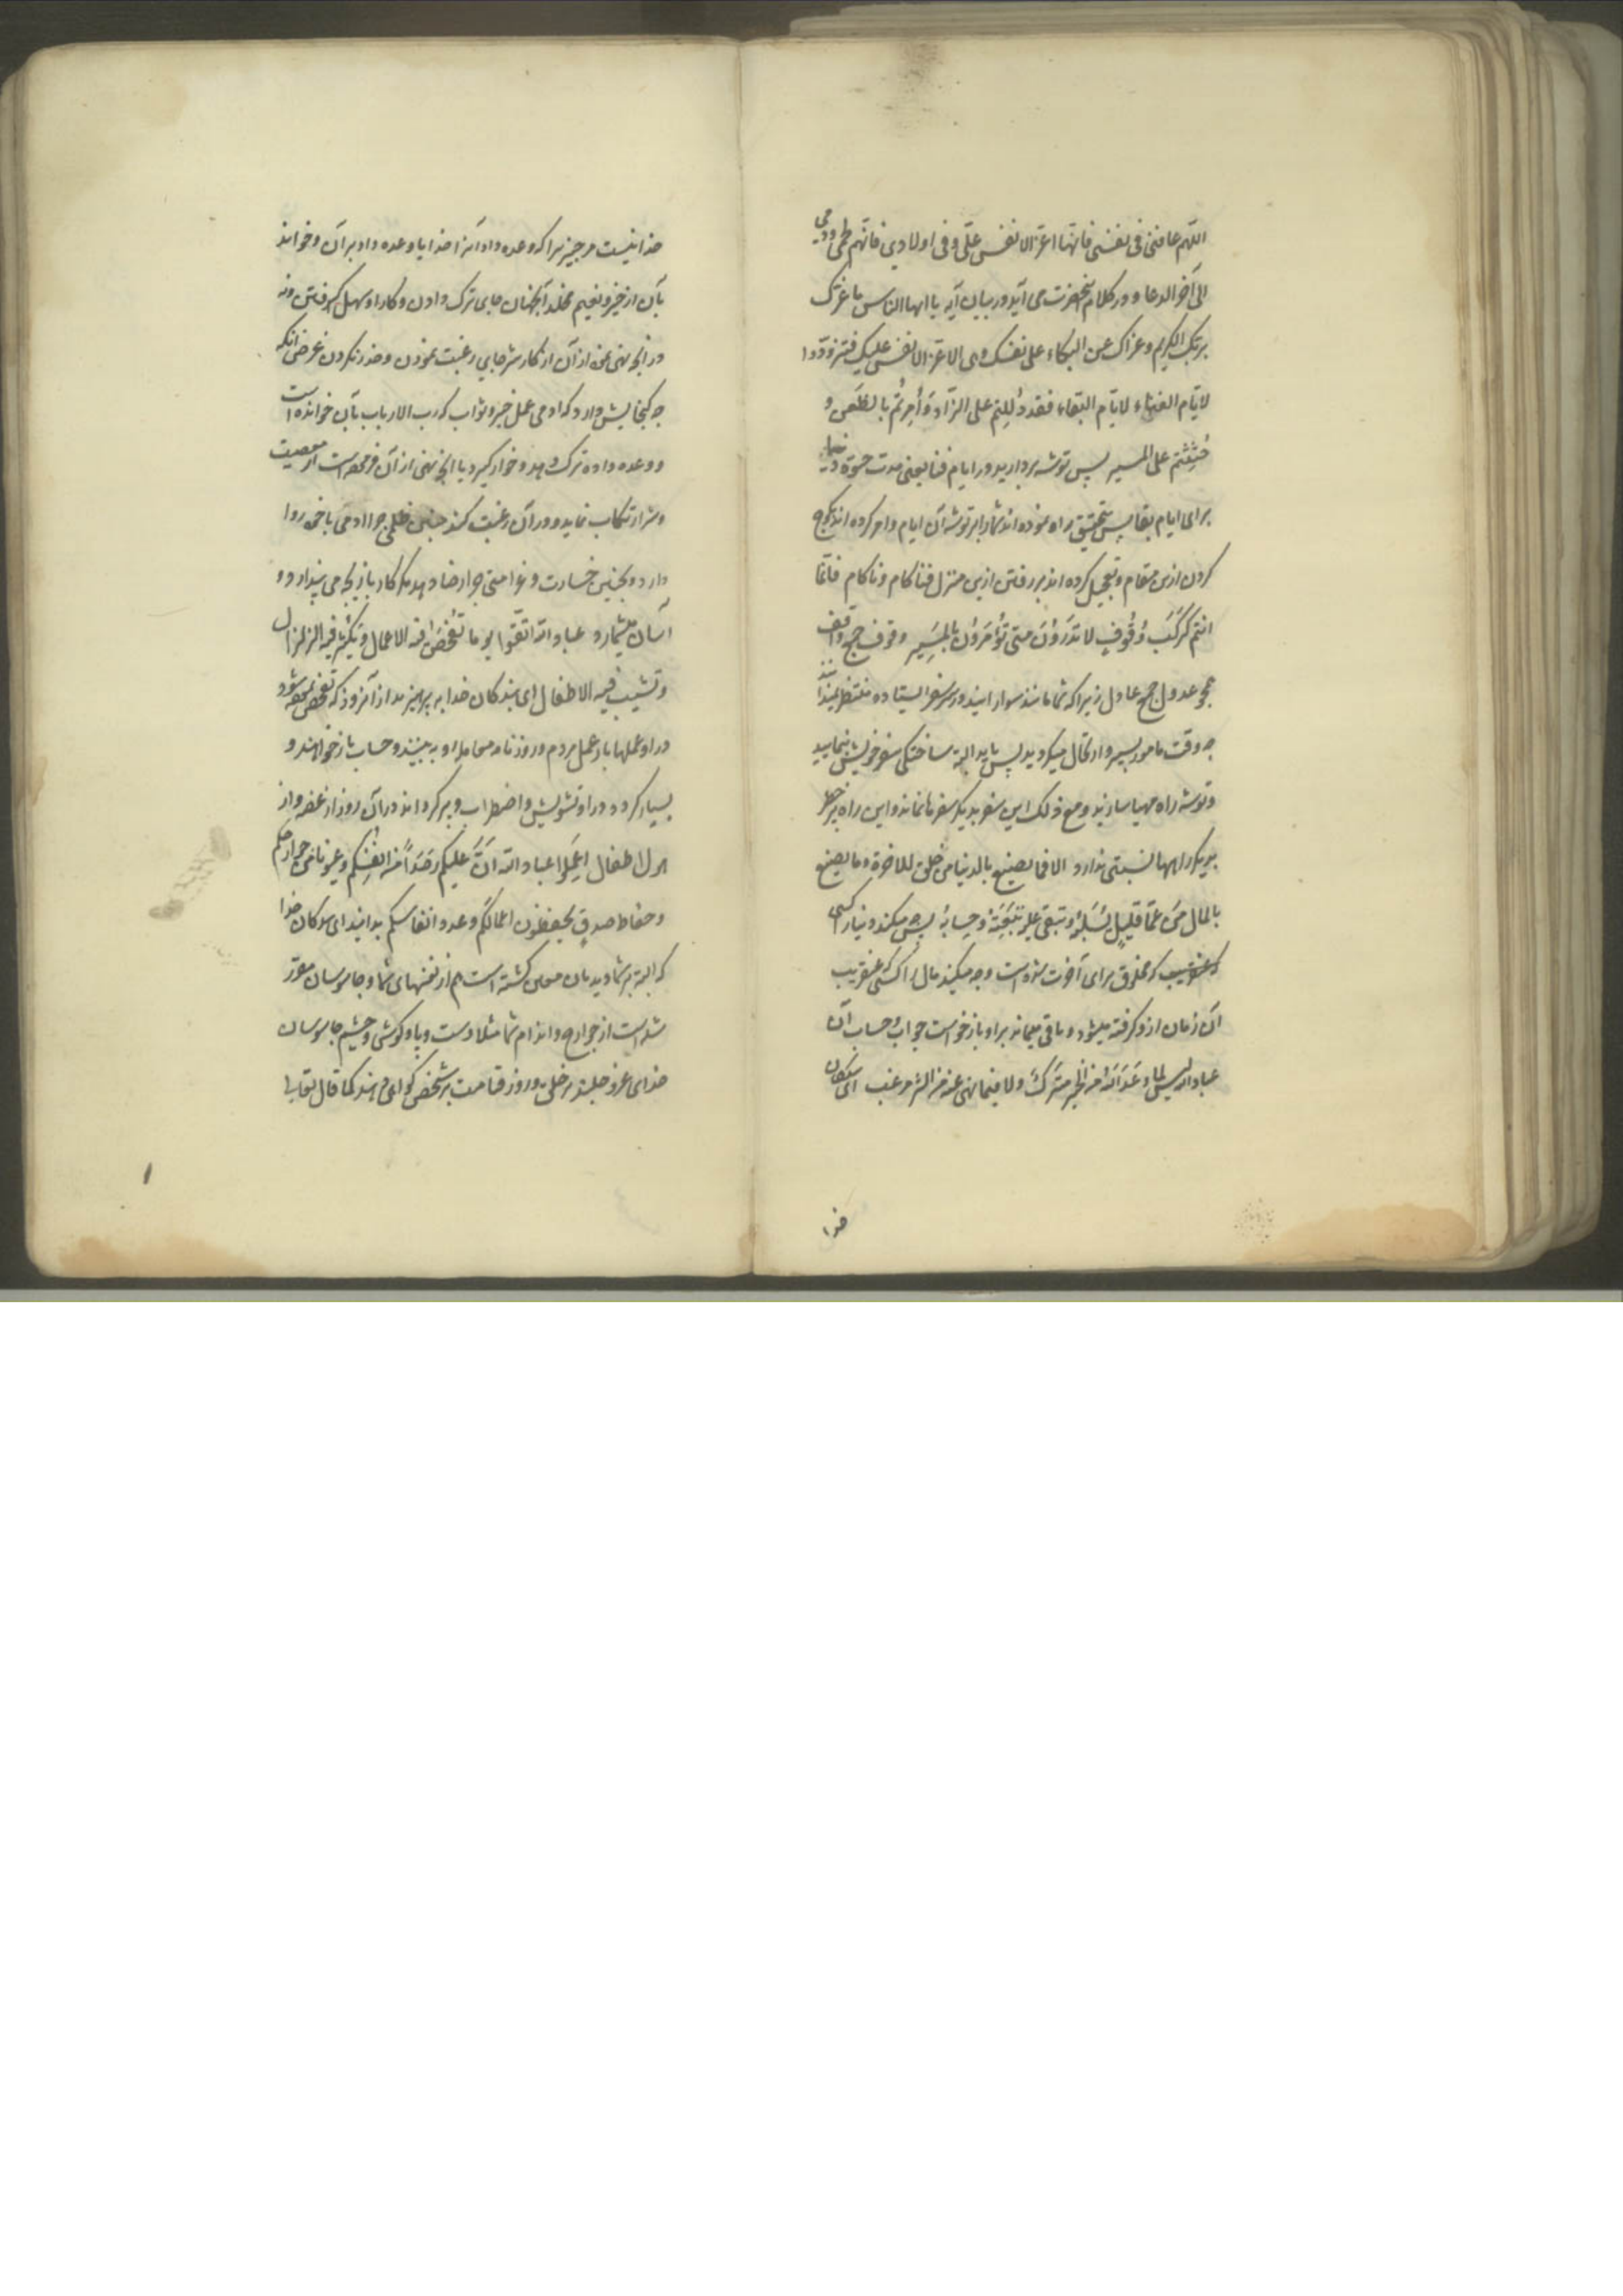 اللهم عافنی فی نفسی فانها اعز الانفس علی و فی اولادی فانهم لحمی و دمی
الی آخر الدعا و در کلام آنحضرت می آید در بیان آیه یا ایها الناس ما غرک
بربک الکریم و عزاک عن البکاء علی نفسک و هی اعز الانفس علیک فتزودوا
لایام الفناء لایام البقاء فقد دُلِلتم علی الزاد وَ اُمِرتُم بالظَعن و
حُثِثتم علی المسیر پس توشه بردارید در ایام فنا یعنی مدت حیوة دنیا
برای ایام بقا پس بتحقیق راه نموده اند شما را بر توشهٔ آن ایام و امر کرده اند بکوچ
کردن ازین مقام و تعجیل کرده اند بر رفتن ازین منزل فنا کام و ناکام فانما
انتم کَرَکبٍ وُقُوفٍ لا تدرُونَ متی تُؤمَرُونَ بالمَسِیر وقوف جمع واقف
همچو عدول جمع عادل زیرا که شما مانند سوارانید در سر سفر ایستاده منتظر
چه وقت مامور بسیر و ارتحال میکردید پس باید البته ساختگی سفر خویش بنمایید
و توشه راه مهیا سازید و مع ذلک این سفر بدیگر سفرها نماند و این راه پرخطر
بدیگر راهها نسبتی ندارد الا فما یصنع بالدنیا من خلق للاخرة و ما یصنع
بالمال من عمّا قلیل یُسلَبُهُ و تبقی علیه تَبِعَتُهُ و حِسابُهُ پس چه میکند دنیا را کسی
که مخلوق برای آخرت شده است و چه میکند مال را کسی که عنقریب
آن زمان ازو گرفته میشود و باقی میماند بر او بازخواست جواب و حساب آن
عباد الله انه لیس لما وعَدَ اللهُ من الخیر مَترَکٌ و لا فیما نهی عنه من الشر مرغب ای بندکان
خدا
خدا نیست مر چیزیرا که وعده داد آنرا خدا یا وعده داد بر آن و خواند
بآن از خیر و نعیم مخلد آنجهان جای ترک دادن و کار او سهل گرفتن و نه
در آنچه نهی نمود از آن از کار شر جای رغبت نمودن و حذر نکردن غرض آنکه
چه گنجایش دارد که ادمی عمل خیر و ثواب که رب الارباب بآن خوانده است
و وعده داده ترک دهد و خوار گیرد یا آنچه نهی از آن فرموده است از معصیت
و شر ارتکاب نماید و در آن رغبت کند چنین ظلمی چرا ادمی با خود روا
دارد و بچنین خسارت و غرامتی چرا رضا دهد مگر کار بازیچه می پندارد و
آسان میشمارد عباد الله اتقوا یوما تُفحَصُ فیه الاعمال و یَکثُرُ فیه الزلزال
و تشیب فیه الاطفال ای بندکان خدا به پرهیزید از آنروز که تفحص کرده شود
در او عملها باز عمل مردم و روزنامه معامله او به بینند و حساب بازخواهند و
بسیار گردد در او تشویش و اضطراب و پیر گرداند در آن روز از غصه و از
هول اطفال اِعلَموا عباد الله انَّ علیکم رَصَداً من انفُسِکم و عیونا من جوارحکم
و حفاظ صدقٍ یحفظون اعمالکم و عدد انفاسکم بدانید ای بندکان خدا
که البته بر شما دیدبان موکل گشته است هم از نفسهای شما و جاسوسان مقرر
شده است از جوارح و اندام شما مثلا دست و پا و گوش و چشم جاسوسان
خدای عز و جلند بر خلق و روز قیامت بر شخص گواهی دهند کما قال تعالی